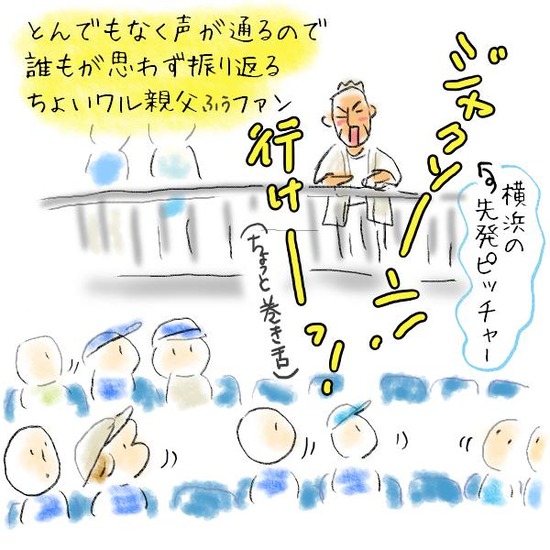 とんでもなく声が通るので
誰もが思わず振り返る
ちょいワル親父ふうファン
ジャクソーーン！
行けーーっ！
（ちょっと巻き舌）
横浜の
先発ピッチャー